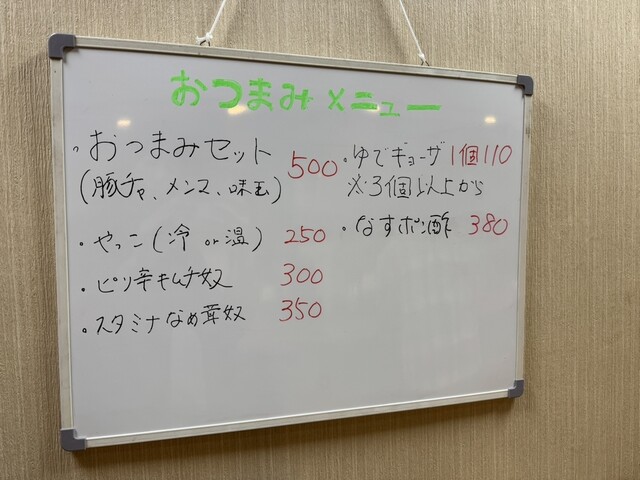 おつまみメニュー
・おつまみセット
(豚チャ、メンマ、味玉) 500
・やっこ(冷 or 温) 250
・ピリ辛キムチ奴 300
・スタミナなめ茸奴 350
・ゆでギョーザ 1個110
※3個以上から
・なすポン酢 380